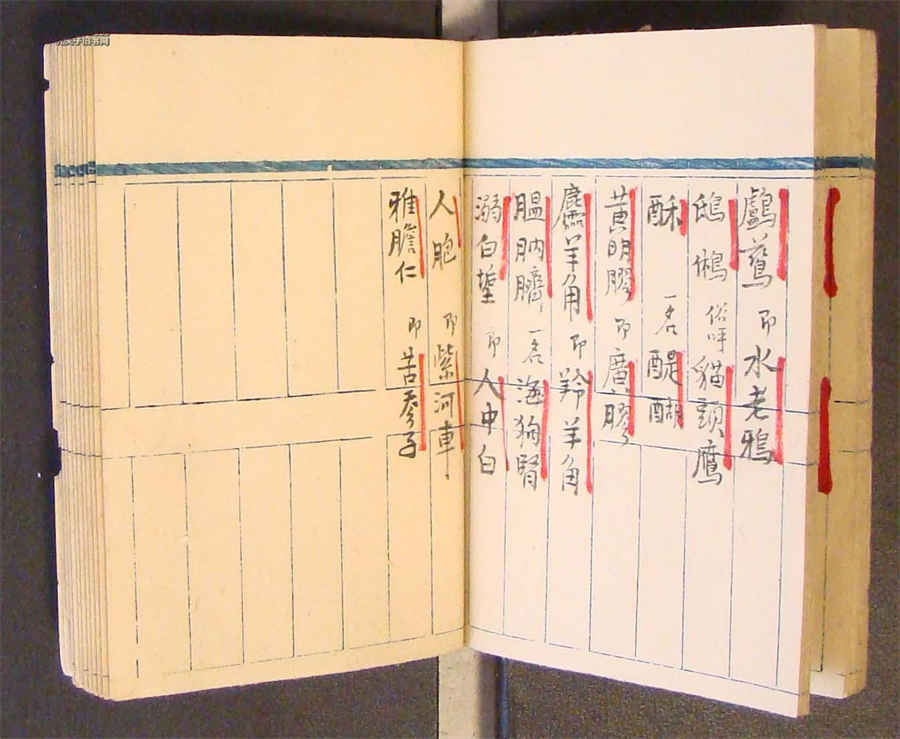 鸕鶿 即水老鴉
鴟鵂 俗呼貓頭鷹
酥 一名醍醐
黃明膠 即廣膠
麢羊角 即羚羊角
膃肭臍 一名海狗腎
溺白垽 即人中白
人胞 即紫河車
雅膽仁 即苦參子